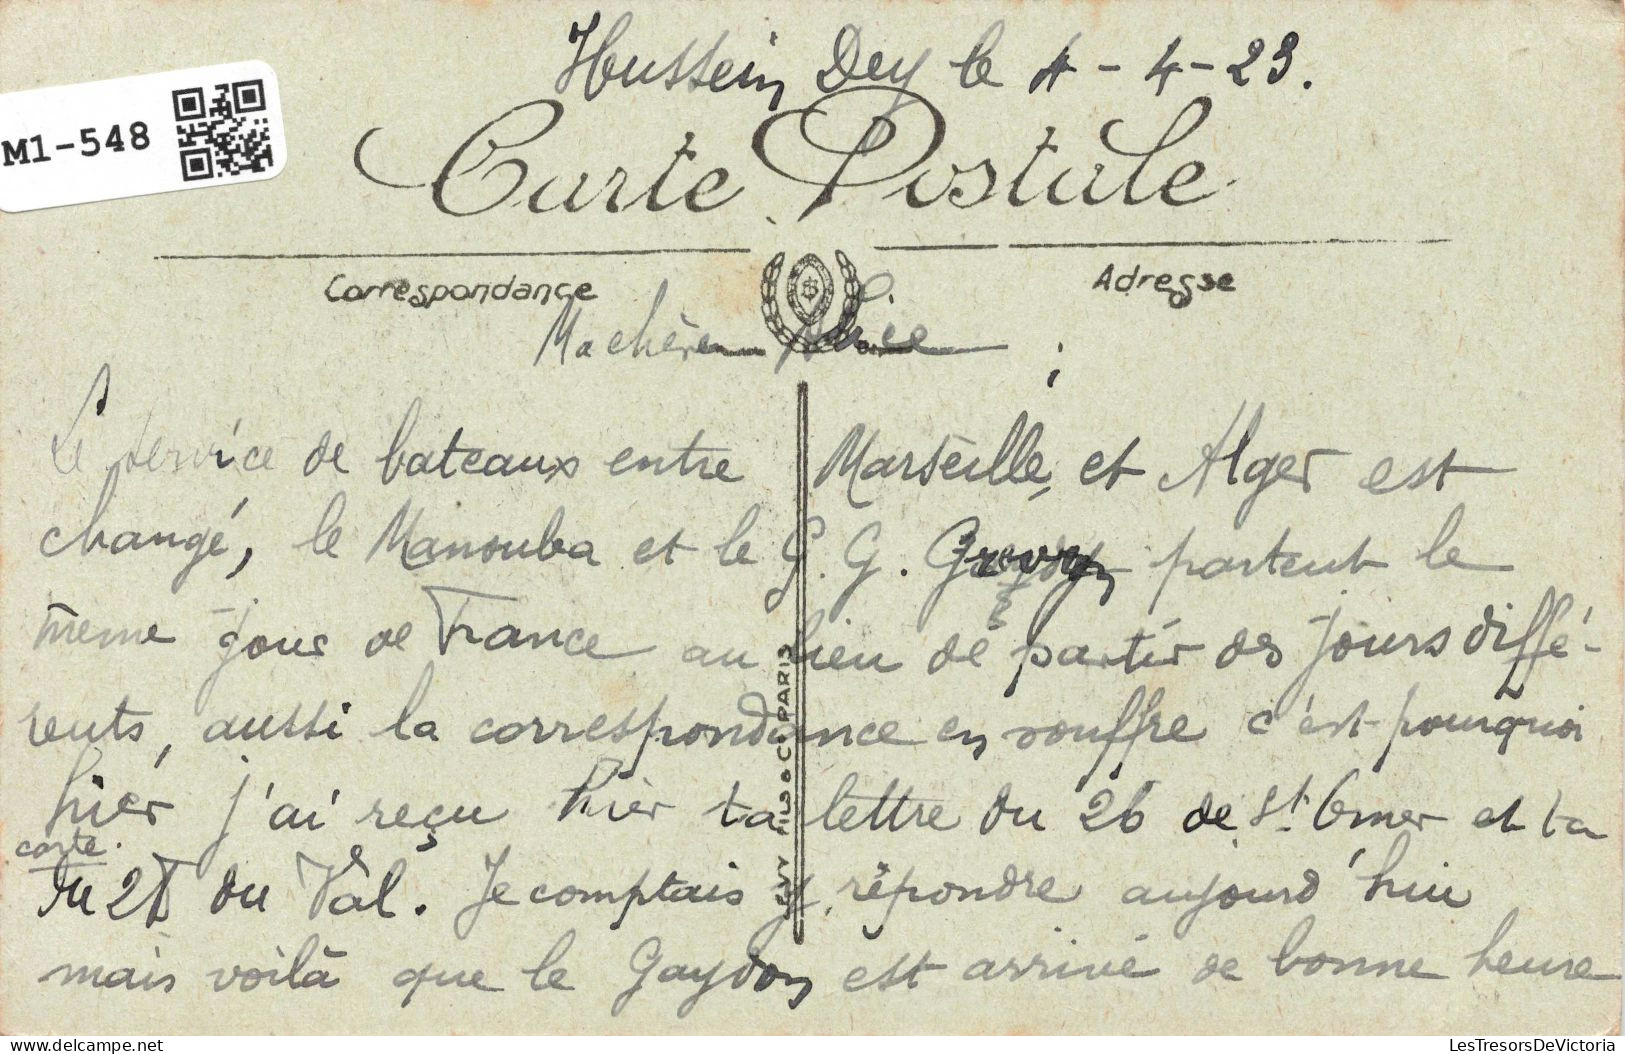 Hussein Dey le 4-4-23.
M1-548
Carte Postale
Correspondance
Adresse
Ma chère Alice
Le service de bateaux entre Marseille, et Alger est
changé, le Manouba et le G. G. partent le
même jour de France au lieu de partir des jours diffé-
rents, aussi la correspondance en souffre c'est pourquoi
hier j'ai reçu hier ta lettre du 26 de St. Omer et ta
carte.
du 27 du Val. Je comptais y répondre aujourd'hui
mais voilà que le Gaydon est arrivé de bonne heure
LEVY FILS & Cie PARIS
M1-548
LesTresorsDeVictoria